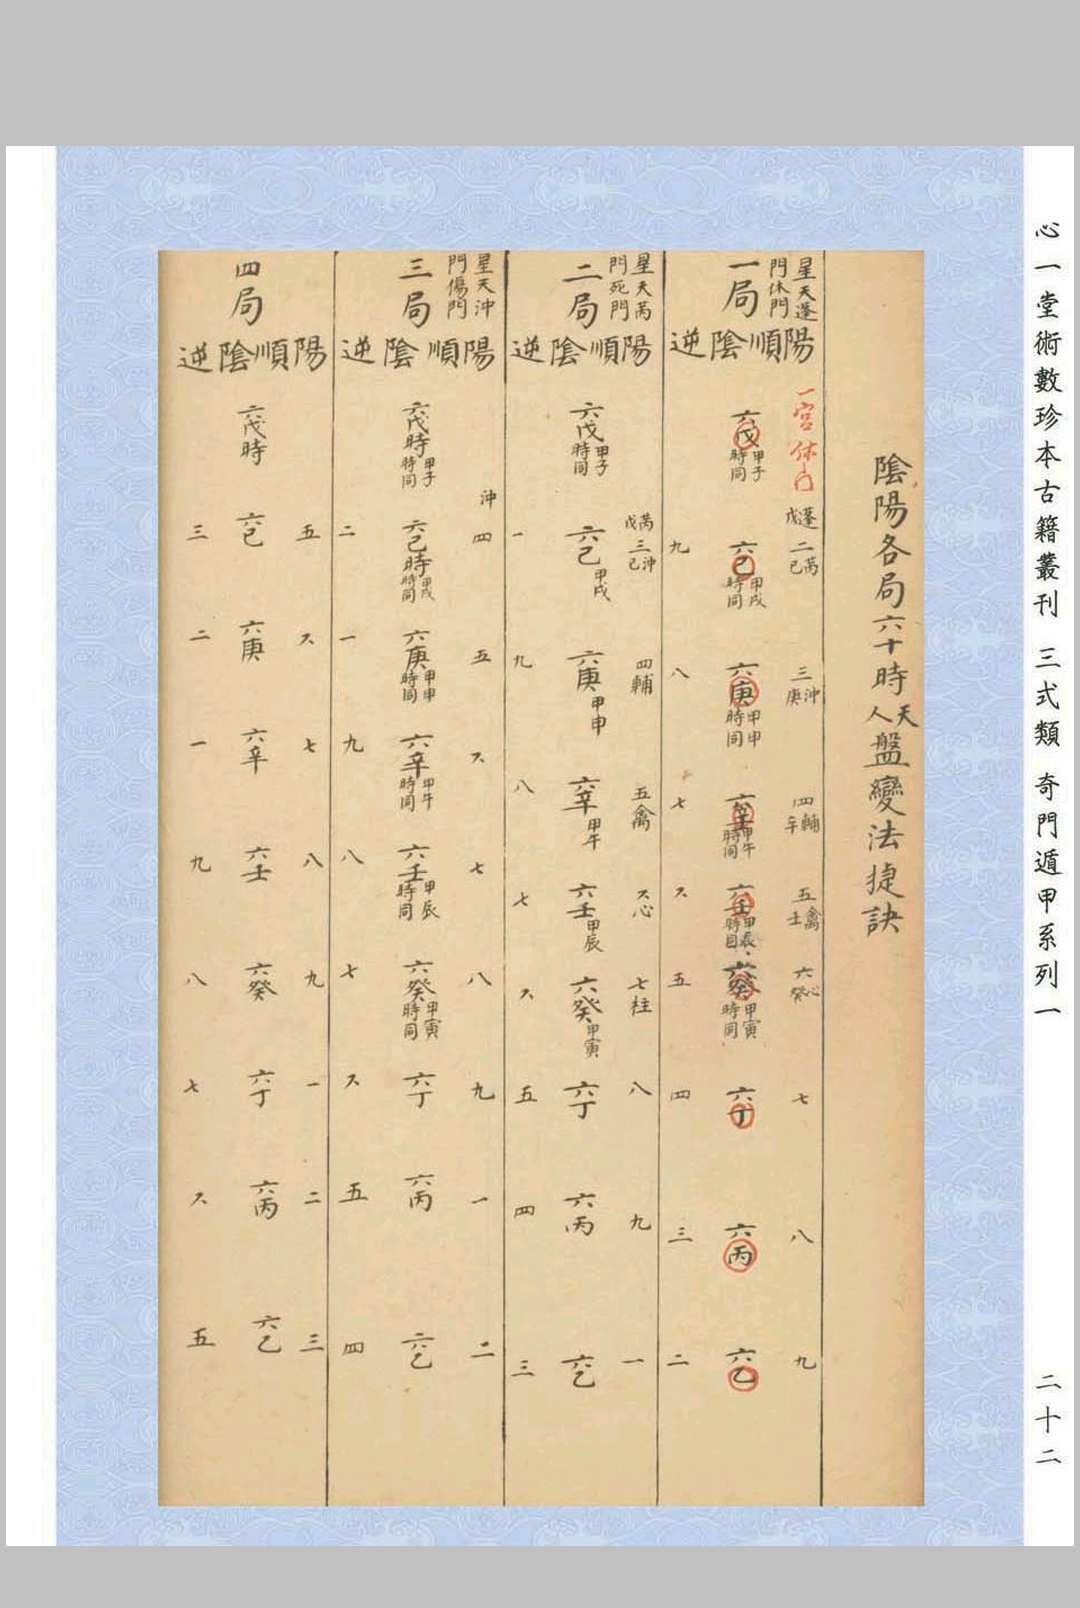 心一堂術數珍本古籍叢刊 三式類 奇門遁甲系列一
二十二
陰陽各局六十時天人盤變法捷訣
星天蓬
門休門
一局
陽順陰逆
一宮休门
蓬戊
六戊 甲子時同
二芮己 六己 甲戌時同 九
三沖庚 六庚 甲申時同 八
四輔辛 六辛 甲午時同 七
五禽壬 六壬 甲辰時同 六
六心癸 六癸 甲寅時同 五
七 六丁 四
八 六丙 三
九 六乙 二
星天芮
門死門
二局
陽順陰逆
芮戊
六戊 甲子時同
三沖己 六己 甲戌 一
四輔 六庚 甲申 九
五禽 六辛 甲午 八
六心 六壬 甲辰 七
七柱 六癸 甲寅 六
八 六丁 五
九 六丙 四
一 六乙 三
星天沖
門傷門
三局
陽順陰逆
六戊時 甲子時同
沖
四 六己時 甲戌時同 二
五 六庚 甲申時同 一
六 六辛 甲午時同 九
七 六壬 甲辰時同 八
八 六癸 甲寅時同 七
九 六丁 六
一 六丙 五
二 六乙 四
四局
陽順陰逆
六戊時
五 六己 三
六 六庚 二
七 六辛 一
八 六壬 九
九 六癸 八
一 六丁 七
二 六丙 六
三 六乙 五